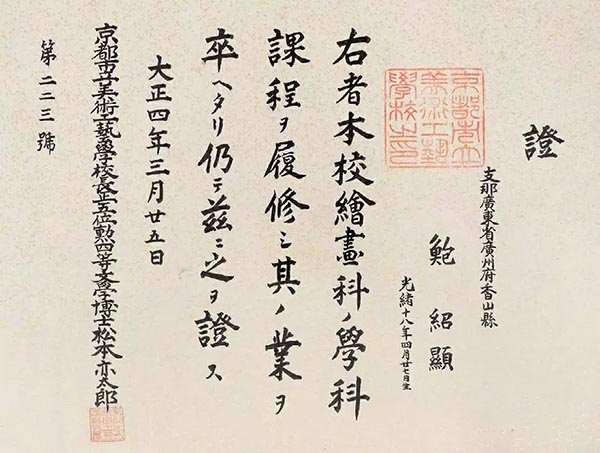 證
支那廣東省廣州府香山縣
鮑紹顯
光緒十八年四月廿七日生
京都市立
美術工藝
學校之印
右者本校繪畫科ノ學科
課程ヲ履修シ其ノ業ヲ
卒ヘタリ仍テ茲ニ之ヲ證ス
大正四年三月廿五日
京都市立美術工藝學校長正五位勲四等文學博士松本亦太郎
第二二三號